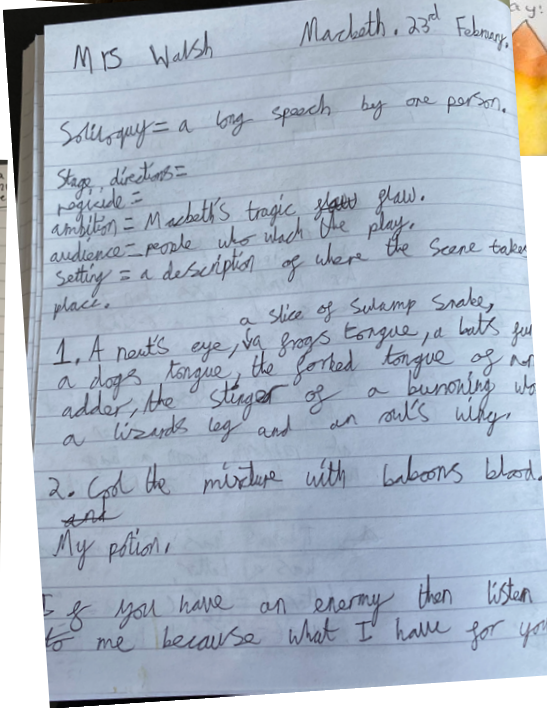 ay:
Mrs Walsh Macbeth. 23rd February.
Soliloquy = a long speech by one person.
Stage, directions =
regicide =
ambition = Macbeth's tragic flaw.
audience = people who wach the play.
setting = a description of where the scene takes
place.
a slice of swamp snake,
1. A newt's eye, a frogs tongue, a bat's fu
a dogs tongue, the forked tongue of an
adder, the stinger of a burrowing wo
a lizards leg and an owl's wing.
2. Cool the mixture with baboons blood.
and
My potion.
If you have an enemy then listen
to me because what I have for you